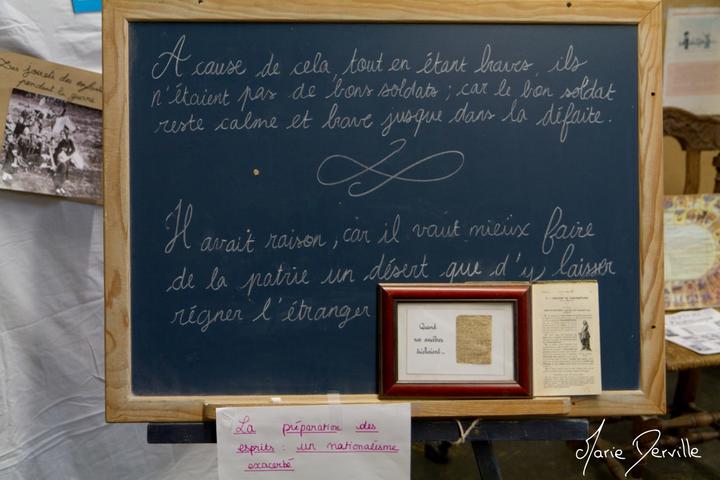 Des jouets des enfants
pendant la guerre
A cause de cela, tout en étant braves, ils
n'étaient pas de bons soldats ; car le bon soldat
reste calme et brave jusque dans la défaite.
Il avait raison, car il vaut mieux faire
de la patrie un désert que d'y laisser
régner l'étranger
Quand
nos ancêtres
tricotaient...
La préparation des
esprits : un nationalisme
exacerbé
Marie Derville